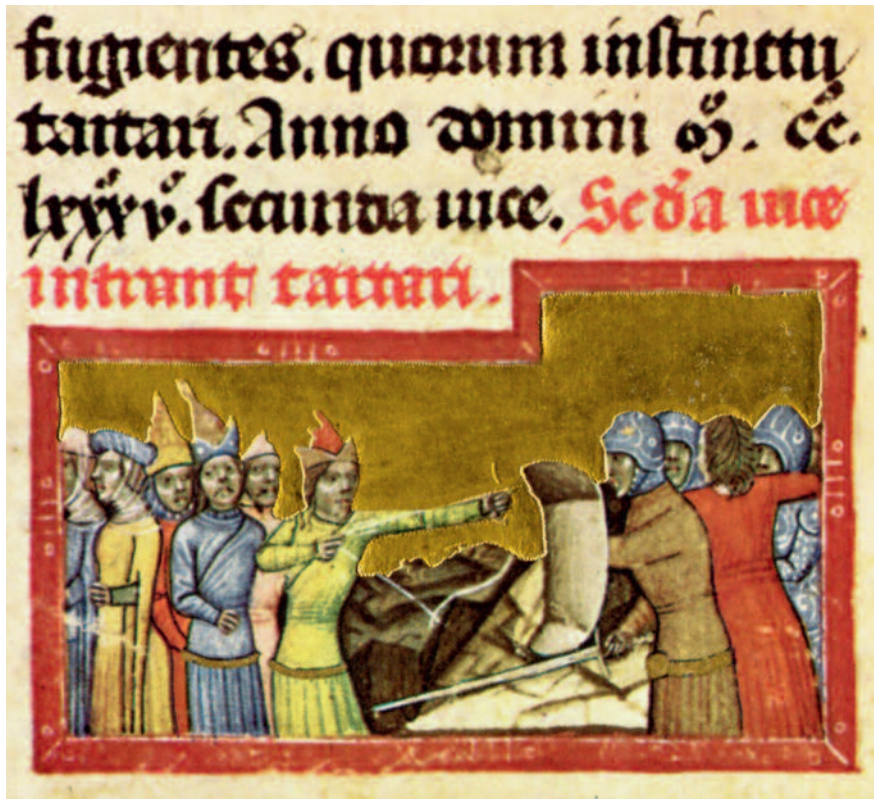 fugientes. quorum instinctu
tartari. Anno domini mͦ. ccͦ.
lxxxͦvͦ. secunda uice. Scd̄a uice
intrant tartari.